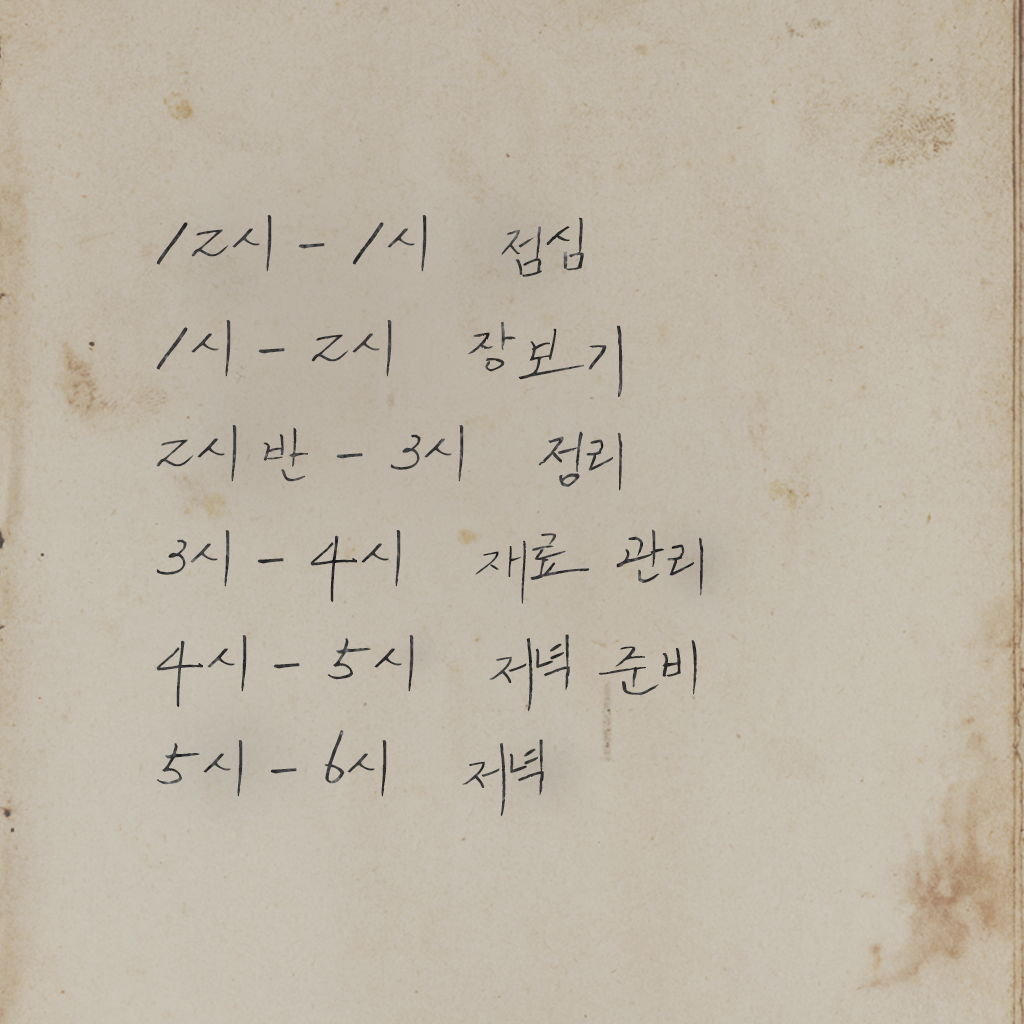 12시 - 1시 점심
1시 - 2시 장보기
2시 반 - 3시 정리
3시 - 4시 재료 관리
4시 - 5시 저녁 준비
5시 - 6시 저녁